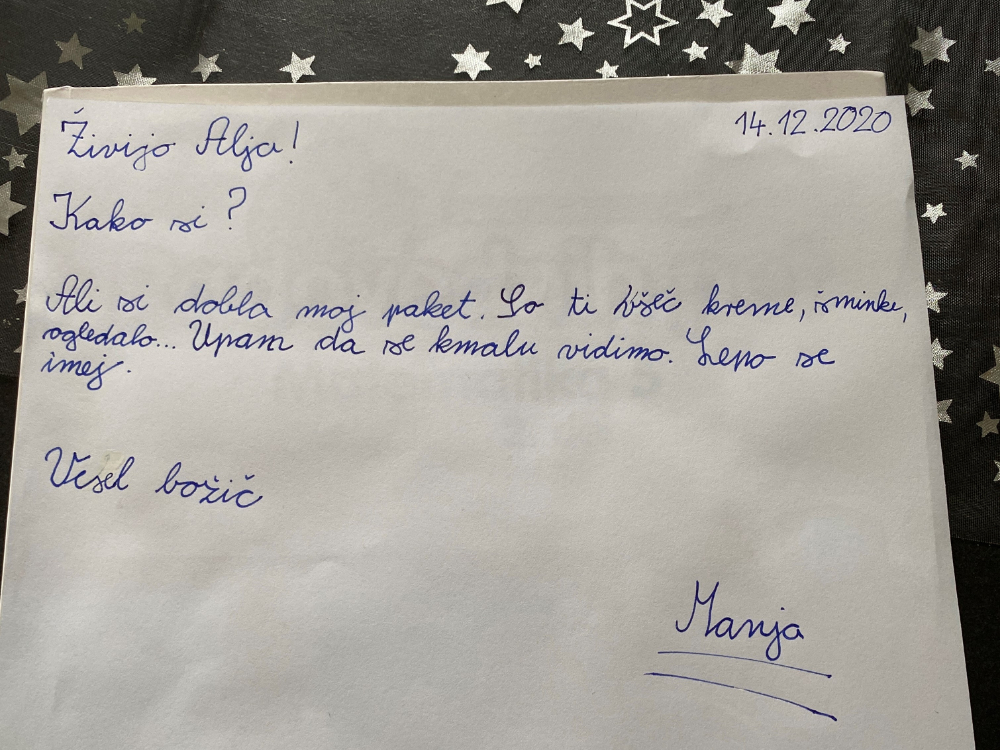 14.12.2020
Živijo Alja!
Kako si?
Ali si dobla moj paket. So ti všeč kreme, šminke,
ogledalo... Upam da se kmalu vidimo. Lepo se
imej.
Vesel božič
Manja